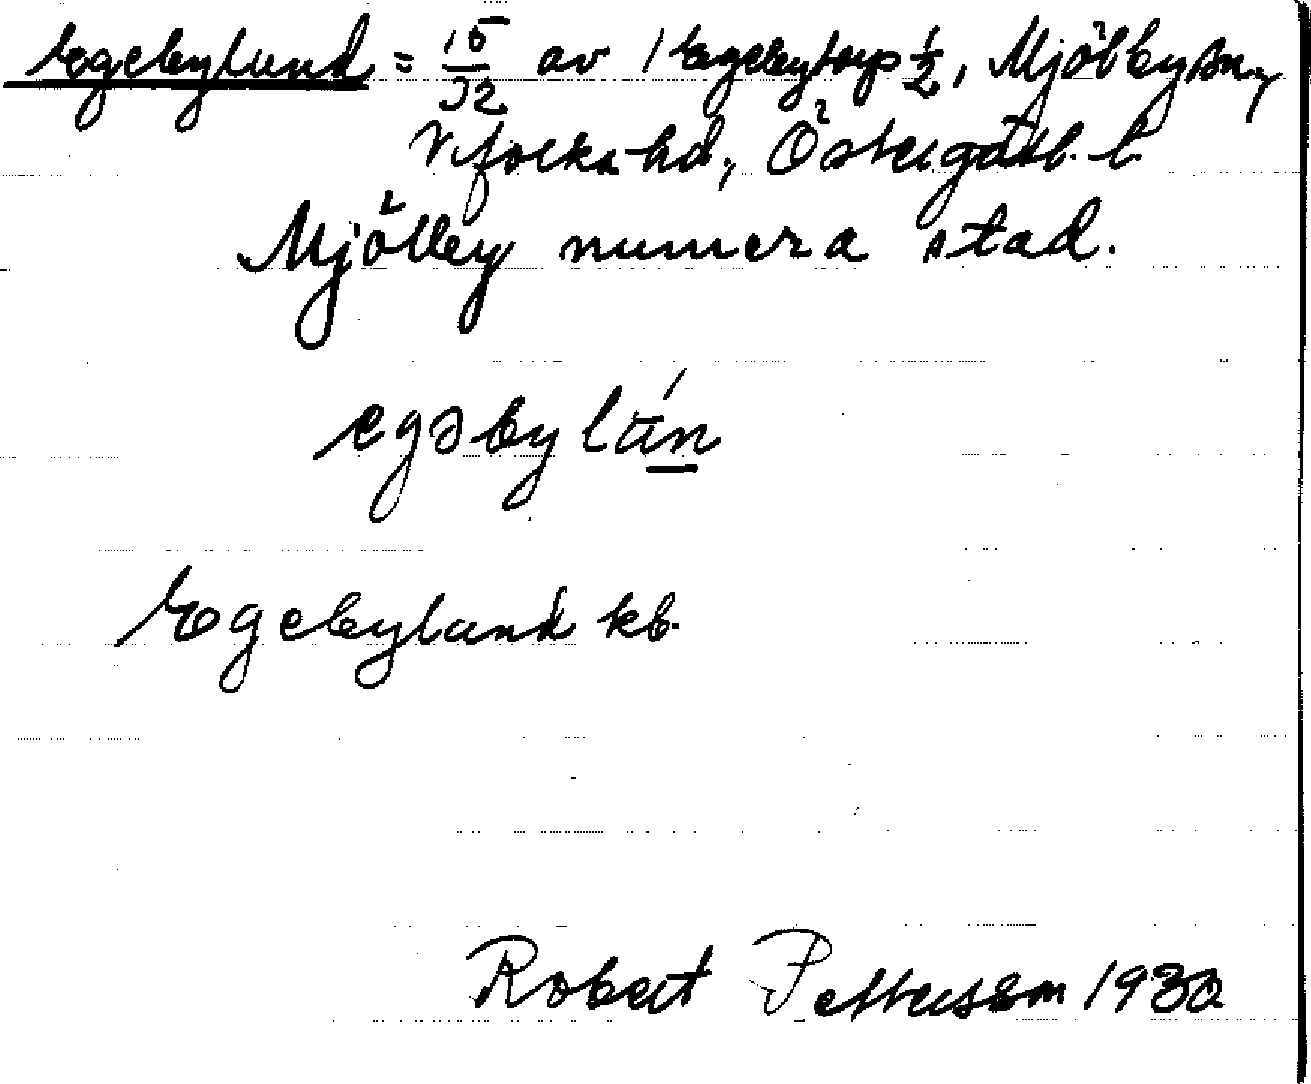 Egebylund = 15/32 av 1 Egebytorp 1/2, Mjölby sn,
Vifolka hd, Östergötl. l.
Mjölby numera stad.
egəbylún
Egebylund kb.
Robert Pettersson 1930